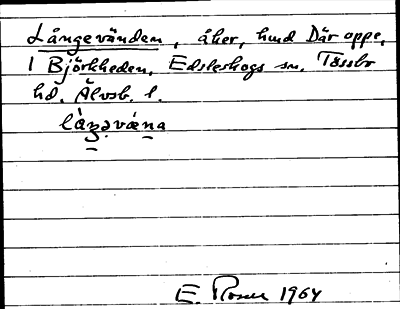 Långevänden, åker, hmd Där oppe,
1 Björkheden, Edsleskogs sn. Tössbo
hd. Älvsb. l.
làŋəvæna
E. Rosen 1964